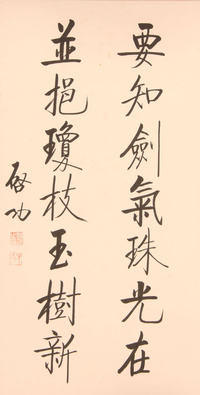 要知劍氣珠光在
並挹瓊枝玉樹新
啓功